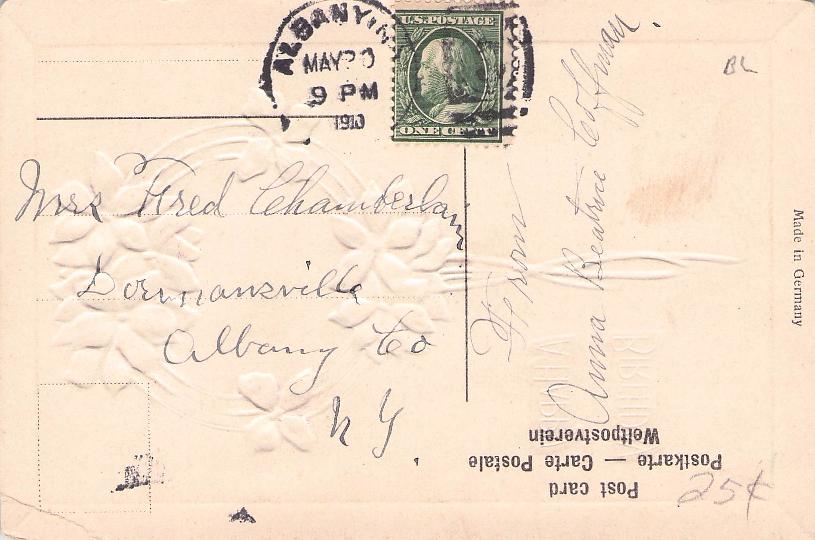 ALBANY, N.Y.
MAY
9 PM
1910
U.S. POSTAGE
ONE CENT
BL
Mrs Fred Chamberlain
Dormansville
Albany Co
N Y
From
Anna Beatrice Coffman.
Made in Germany
Post card
Postkarte — Carte Postale
Weltpostverein
25¢